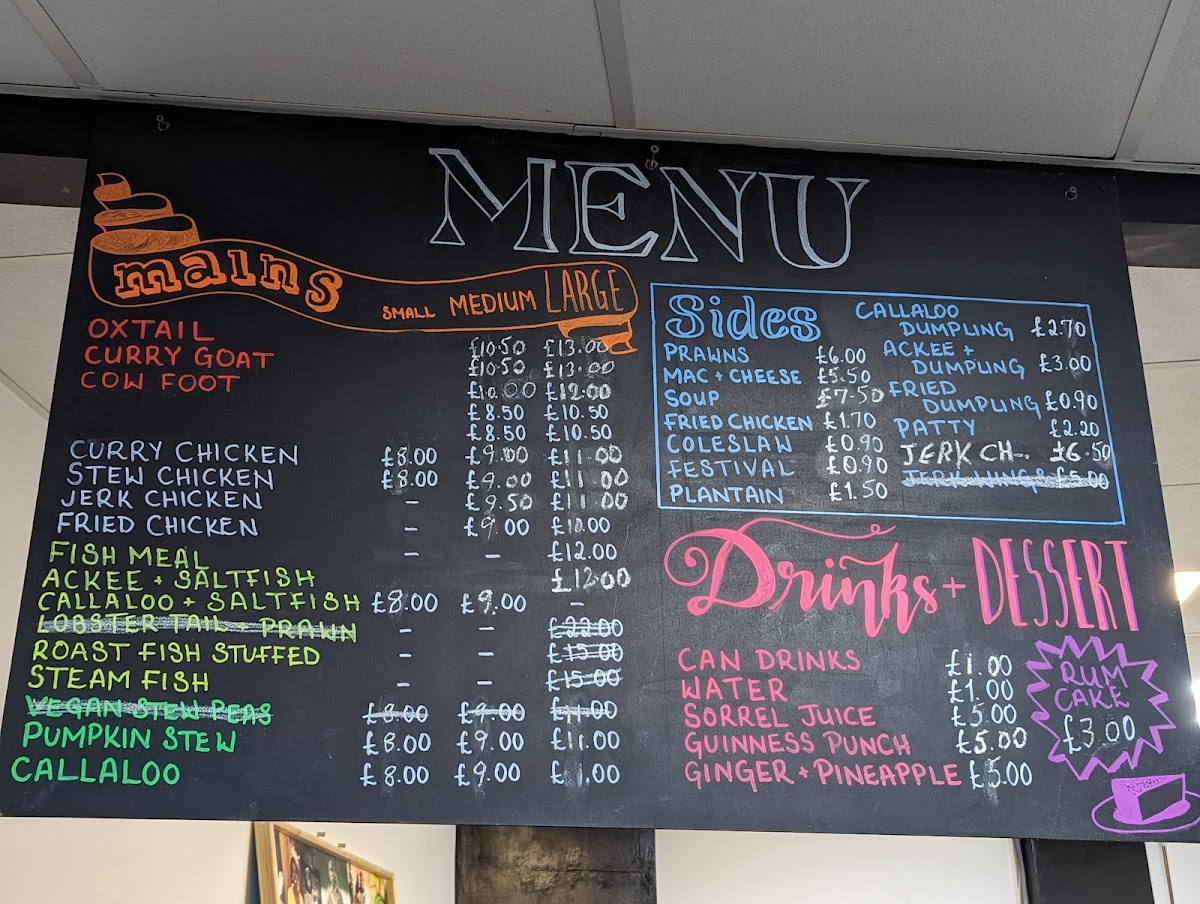 MENU
mains SMALL MEDIUM LARGE
OXTAIL £10.50 £13.00
CURRY GOAT £10.50 £13.00
COW FOOT £10.00 £12.00
£8.50 £10.50
£8.50 £10.50
CURRY CHICKEN £8.00 £9.00 £11.00
STEW CHICKEN £8.00 £9.00 £11.00
JERK CHICKEN - £9.50 £11.00
FRIED CHICKEN £9.00 £10.00
FISH MEAL - - £12.00
ACKEE + SALTFISH £12.00
CALLALOO + SALTFISH £8.00 £9.00 -
LOBSTER TAIL + PRAWN - - £22.00
ROAST FISH STUFFED - - £15.00
STEAM FISH - - £15.00
VEGAN STEW PEAS £8.00 £9.00 £11.00
PUMPKIN STEW £8.00 £9.00 £11.00
CALLALOO £8.00 £9.00 £11.00
Sides
PRAWNS £6.00
MAC + CHEESE £5.50
SOUP £7.50
FRIED CHICKEN £1.70
COLESLAW £0.90
FESTIVAL £0.90
PLANTAIN £1.50
CALLALOO
DUMPLING £2.70
ACKEE +
DUMPLING £3.00
FRIED
DUMPLING £0.90
PATTY £2.20
JERK CH-. £6.50
JERK WINGS £5.00
Drinks + DESSERT
CAN DRINKS £1.00
WATER £1.00
SORREL JUICE £5.00
GUINNESS PUNCH £5.00
GINGER + PINEAPPLE £5.00
RUM
CAKE
£3.00